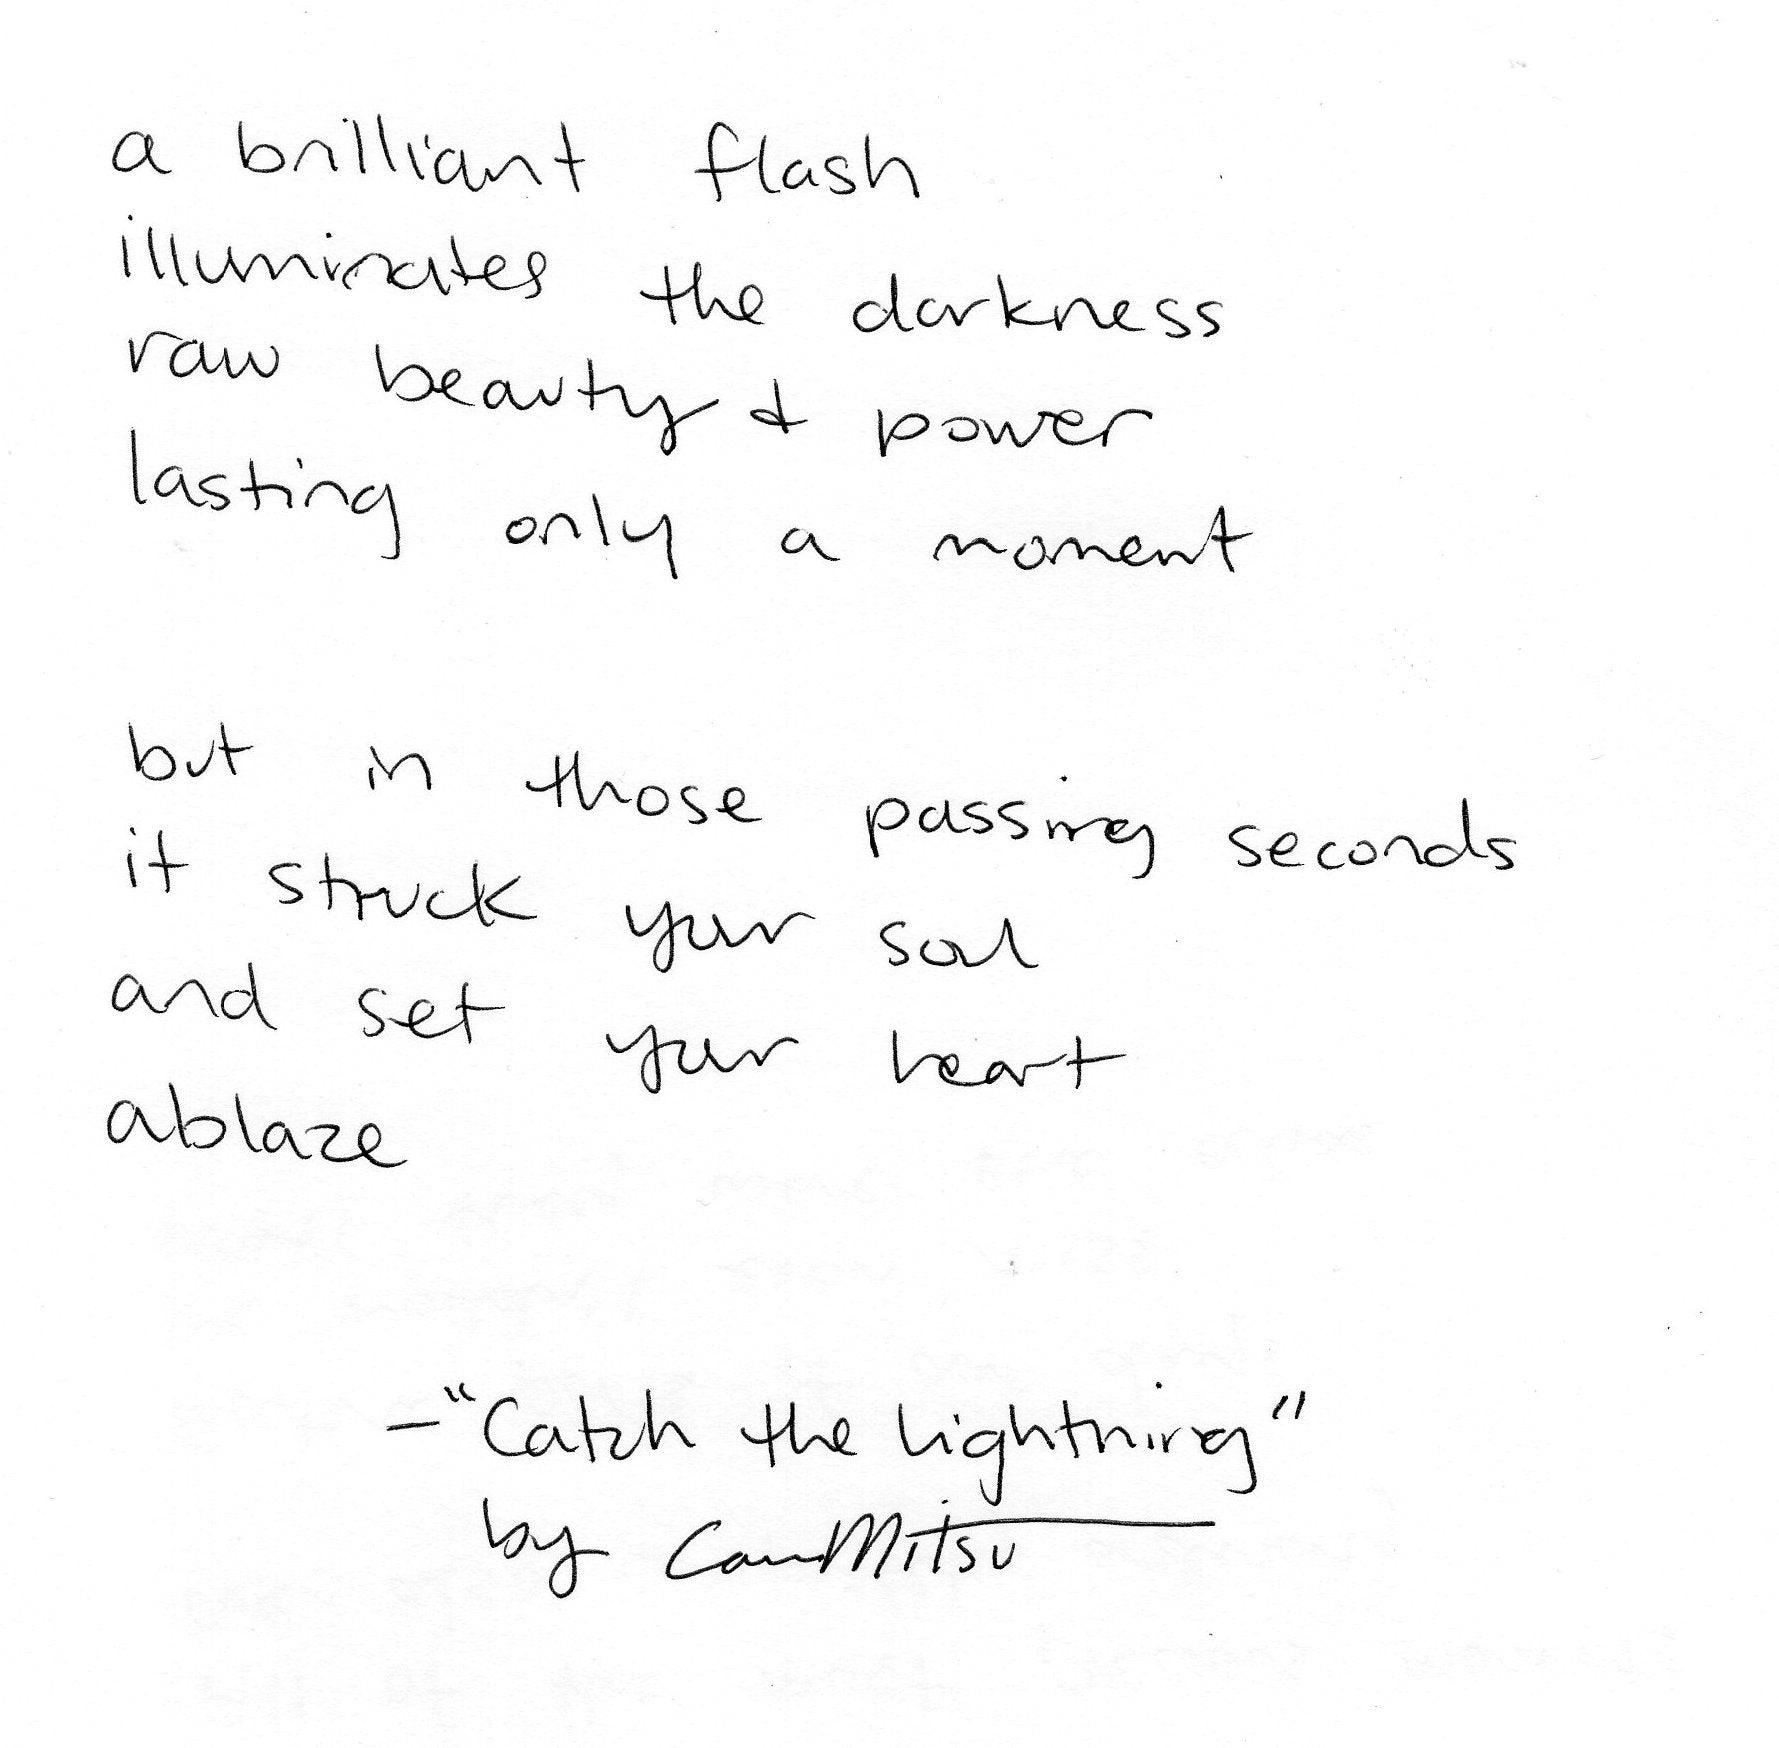 a brilliant flash
illuminates the darkness
raw beauty & power
lasting only a moment
but in those passing seconds
it struck your soul
and set your heart
ablaze
-"Catch the lightning"
by CamMitsu